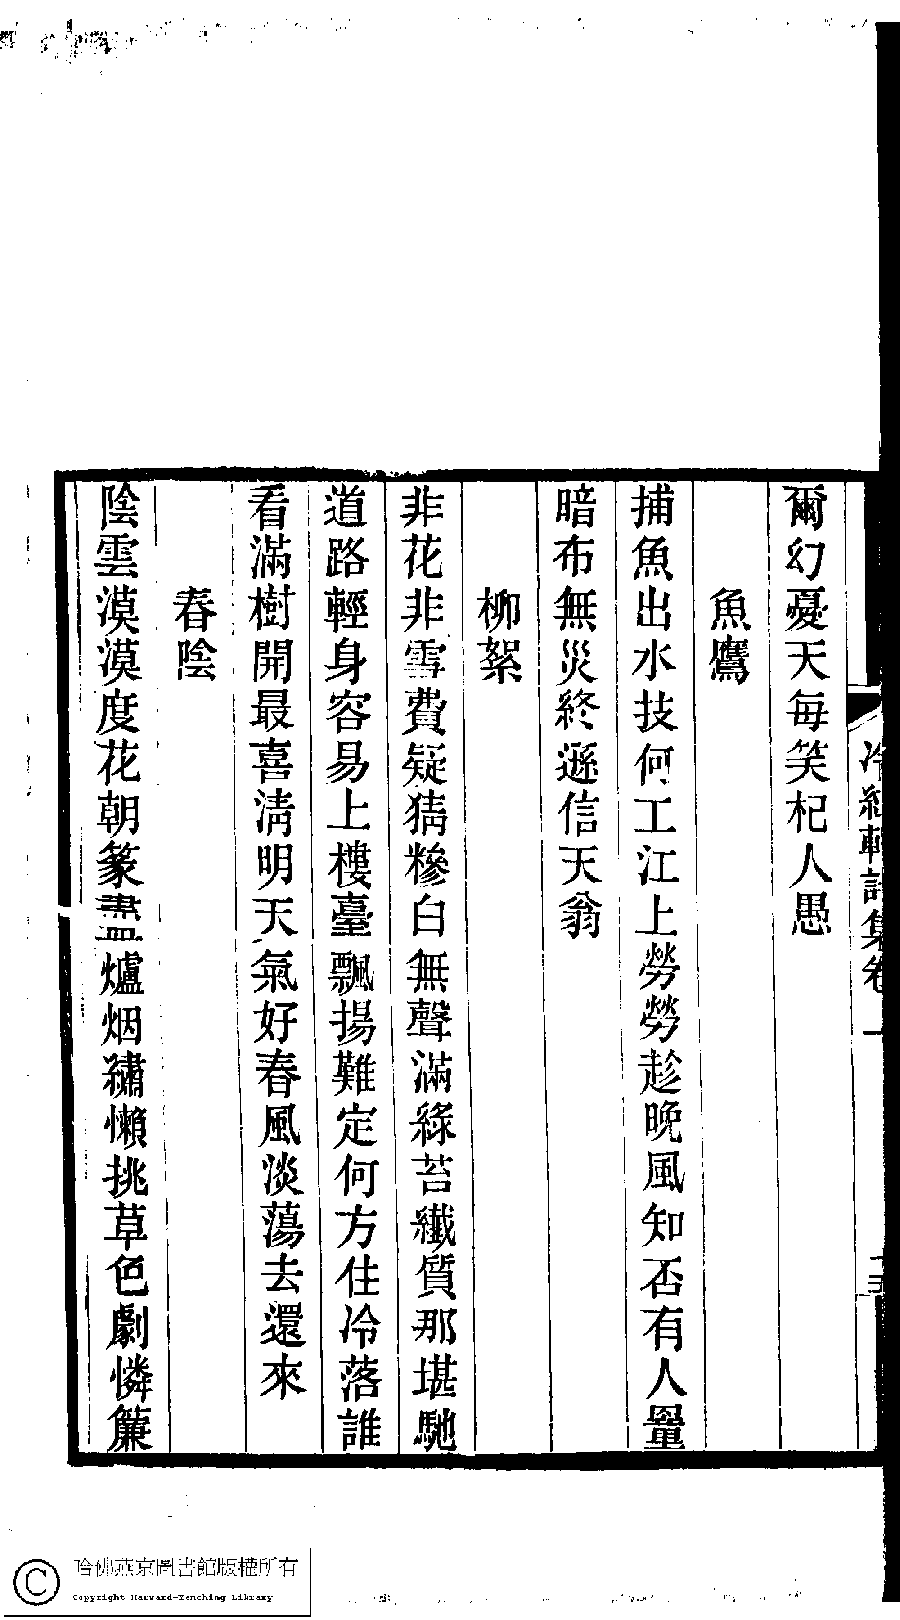 爾幻憂天每笑杞人愚
魚鷹
捕魚出水技何工江上勞勞趁晚風知否有人量
暗布無災終遜信天翁
柳絮
非花非雪費疑猜糝白無聲滿綠苔纖質那堪馳
道路輕身容易上樓臺飄揚難定何方住冷落誰
看滿樹開最喜清明天氣好春風淡蕩去還來
春陰
陰雲漠漠度花朝篆盡爐烟繡懶挑草色劇憐簾
哈佛燕京圖書館版權所有
Copyright Harvard-Yenching Library